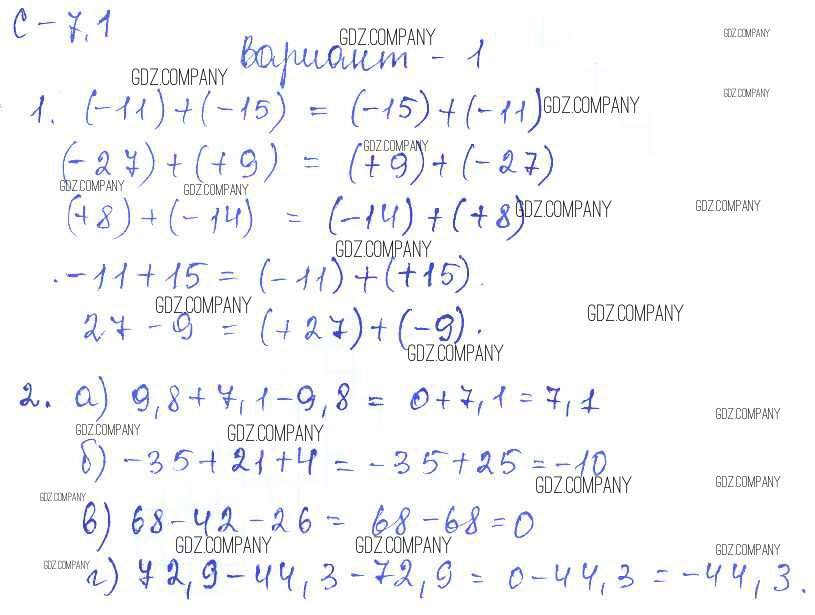 С - 7.1
GDZ.COMPANY
GDZ.COMPANY
Вариант - 1
GDZ.COMPANY
GDZ.COMPANY
1. (-11)+(-15) = (-15)+(-11)
GDZ.COMPANY
GDZ.COMPANY
(-27)+(+9) = (+9)+(-27)
GDZ.COMPANY
GDZ.COMPANY
(+8)+(-14) = (-14)+(+8)
GDZ.COMPANY
GDZ.COMPANY
GDZ.COMPANY
-11+15 = (-11)+(+15).
GDZ.COMPANY
GDZ.COMPANY
27-9 = (+27)+(-9).
GDZ.COMPANY
2. а) 9,8+7,1-9,8 = 0+7,1=7,1
GDZ.COMPANY
GDZ.COMPANY
GDZ.COMPANY
б) -35+21+4 = -35+25=-10
GDZ.COMPANY
GDZ.COMPANY
GDZ.COMPANY
в) 68-42-26= 68-68=0
GDZ.COMPANY
GDZ.COMPANY
GDZ.COMPANY
GDZ.COMPANY
г) 72,9-44,3-72,9 = 0-44,3=-44,3.